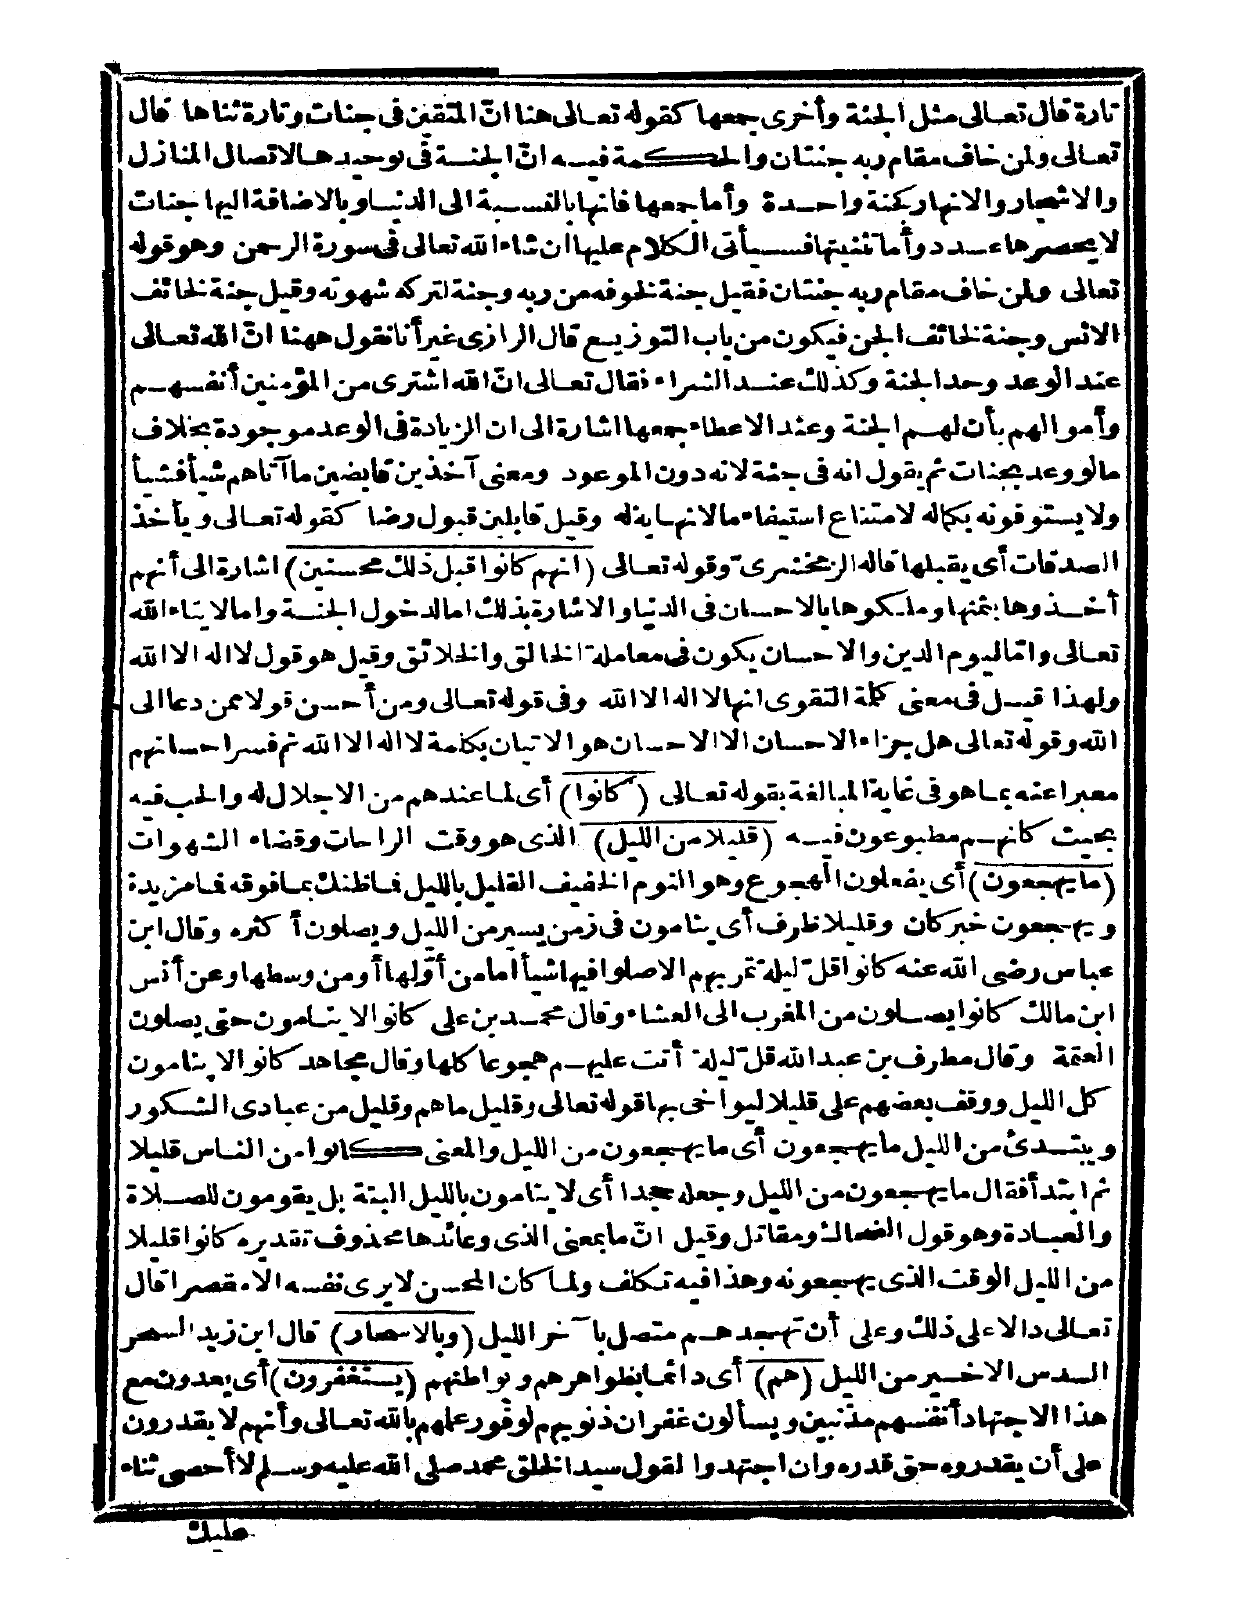 تارة قال تعالى مثل الجنة وأخرى جمعها كقوله تعالى هنا انّ المتقين فى جنات وتارة ثناها قال
تعالى ولمن خاف مقام ربه جنتان والحكمة فيه انّ الجنة فى توحيدها لاتصال المنازل
والاشجار والانهار كجنة واحدة وأما جمعها فانها بالنسبة الى الدنيا وبالاضافة اليها جنات
لا يحصرها عدد وأما تثنيتها فسيأتى الكلام عليها ان شاء الله تعالى فى سورة الرحمن وهو قوله
تعالى ولمن خاف مقام ربه جنتان فقيل جنة لخوفه من ربه وجنة لتركه شهوته وقيل جنة لخائف
الانس وجنة لخائف الجن فيكون من باب التوزيع قال الرازى غير أنا نقول ههنا انّ الله تعالى
عند الوعد وحد الجنة وكذلك عند الشراء فقال تعالى انّ الله اشترى من المؤمنين أنفسهم
وأموالهم بأن لهم الجنة وعند الاعطاء جمعها اشارة الى ان الزيادة فى الوعد موجودة بخلاف
مالو وعد بجنات ثم يقول انه فى جنة لانه دون الموعود ومعنى آخذين قابضين ما آتاهم شيأ فشيأ
ولا يستوفونه بكماله لامتناع استيفاء مالا نهاية له وقيل قابلين قبول رضا كقوله تعالى ويأخذ
الصدقات أى يقبلها قاله الزمخشرىّ وقوله تعالى (انهم كانوا قبل ذلك محسنين) اشارة الى أنهم
أخذوها بثمنها وملكوها بالاحسان فى الدنيا والاشارة بذلك اما لدخول الجنة واما لايتاء الله
تعالى وامّا ليوم الدين والاحسان يكون فى معاملة الخالق والخلائق وقيل هو قول لا اله الا الله
ولهذا قيل فى معنى كلمة التقوى انها لا اله الا الله وفى قوله تعالى ومن أحسن قولا ممن دعا الى
الله وقوله تعالى هل جزاء الاحسان الا الاحسان هو الاتيان بكلمة لا اله الا الله ثم فسر احسانهم
معبرا عنه بما هو فى غاية المبالغة بقوله تعالى (كانوا) أى لما عندهم من الاجلال له والحب فيه
بحيث كانهم مطبوعون فيه (قليلا من الليل) الذى هو وقت الراحات وقضاء الشهوات
(ما يهجعون) أى يفعلون الهجوع وهو النوم الخفيف القليل بالليل فما ظنك بما فوقه فما مزيدة
ويهجعون خبر كان وقليلا ظرف أى ينامون فى زمن يسير من الليل ويصلون أكثره وقال ابن
عباس رضى الله عنه كانوا اقل ليلة تمر بهم الا صلوا فيها شيأ اما من أوّلها أو من وسطها وعن أنس
ابن مالك كانوا يصلون من المغرب الى العشاء وقال محمد بن على كانوا لا ينامون حتى يصلون
العتمة وقال مطرف بن عبد الله قلّ ليلة أتت عليهم هجوعا كلها وقال مجاهد كانوا لا ينامون
كل الليل ووقف بعضهم على قليلا ليواخى بها قوله تعالى وقليل ما هم وقليل من عبادى الشكور
ويبتدئ من الليل ما يهجعون أى ما يهجعون من الليل والمعنى كانوا من الناس قليلا
ثم ابتدأ فقال ما يهجعون من الليل وجعله جحدا أى لا ينامون بالليل البتة بل يقومون للصلاة
والعبادة وهو قول الضحاك ومقاتل وقيل انّ ما بمعنى الذى وعائدها محذوف تقديره كانوا قليلا
من الليل الوقت الذى يهجعونه وهذا فيه تكلف ولما كان المحسن لا يرى نفسه الا مقصرا قال
تعالى دالا على ذلك وعلى أن تهجدهم متصل بآخر الليل (وبالاسحار) قال ابن زيد السحر
السدس الاخير من الليل (هم) أى دائما بظواهرهم وبواطنهم (يستغفرون) أى يعدون مع
هذا الاجتهاد أنفسهم مذنبين ويسألون غفران ذنوبهم لوفور علمهم بالله تعالى وأنهم لا يقدرون
على أن يقدروه حق قدره وان اجتهدوا لقول سيد الخلق محمد صلى الله عليه وسلم لا أحصى ثناء
عليك